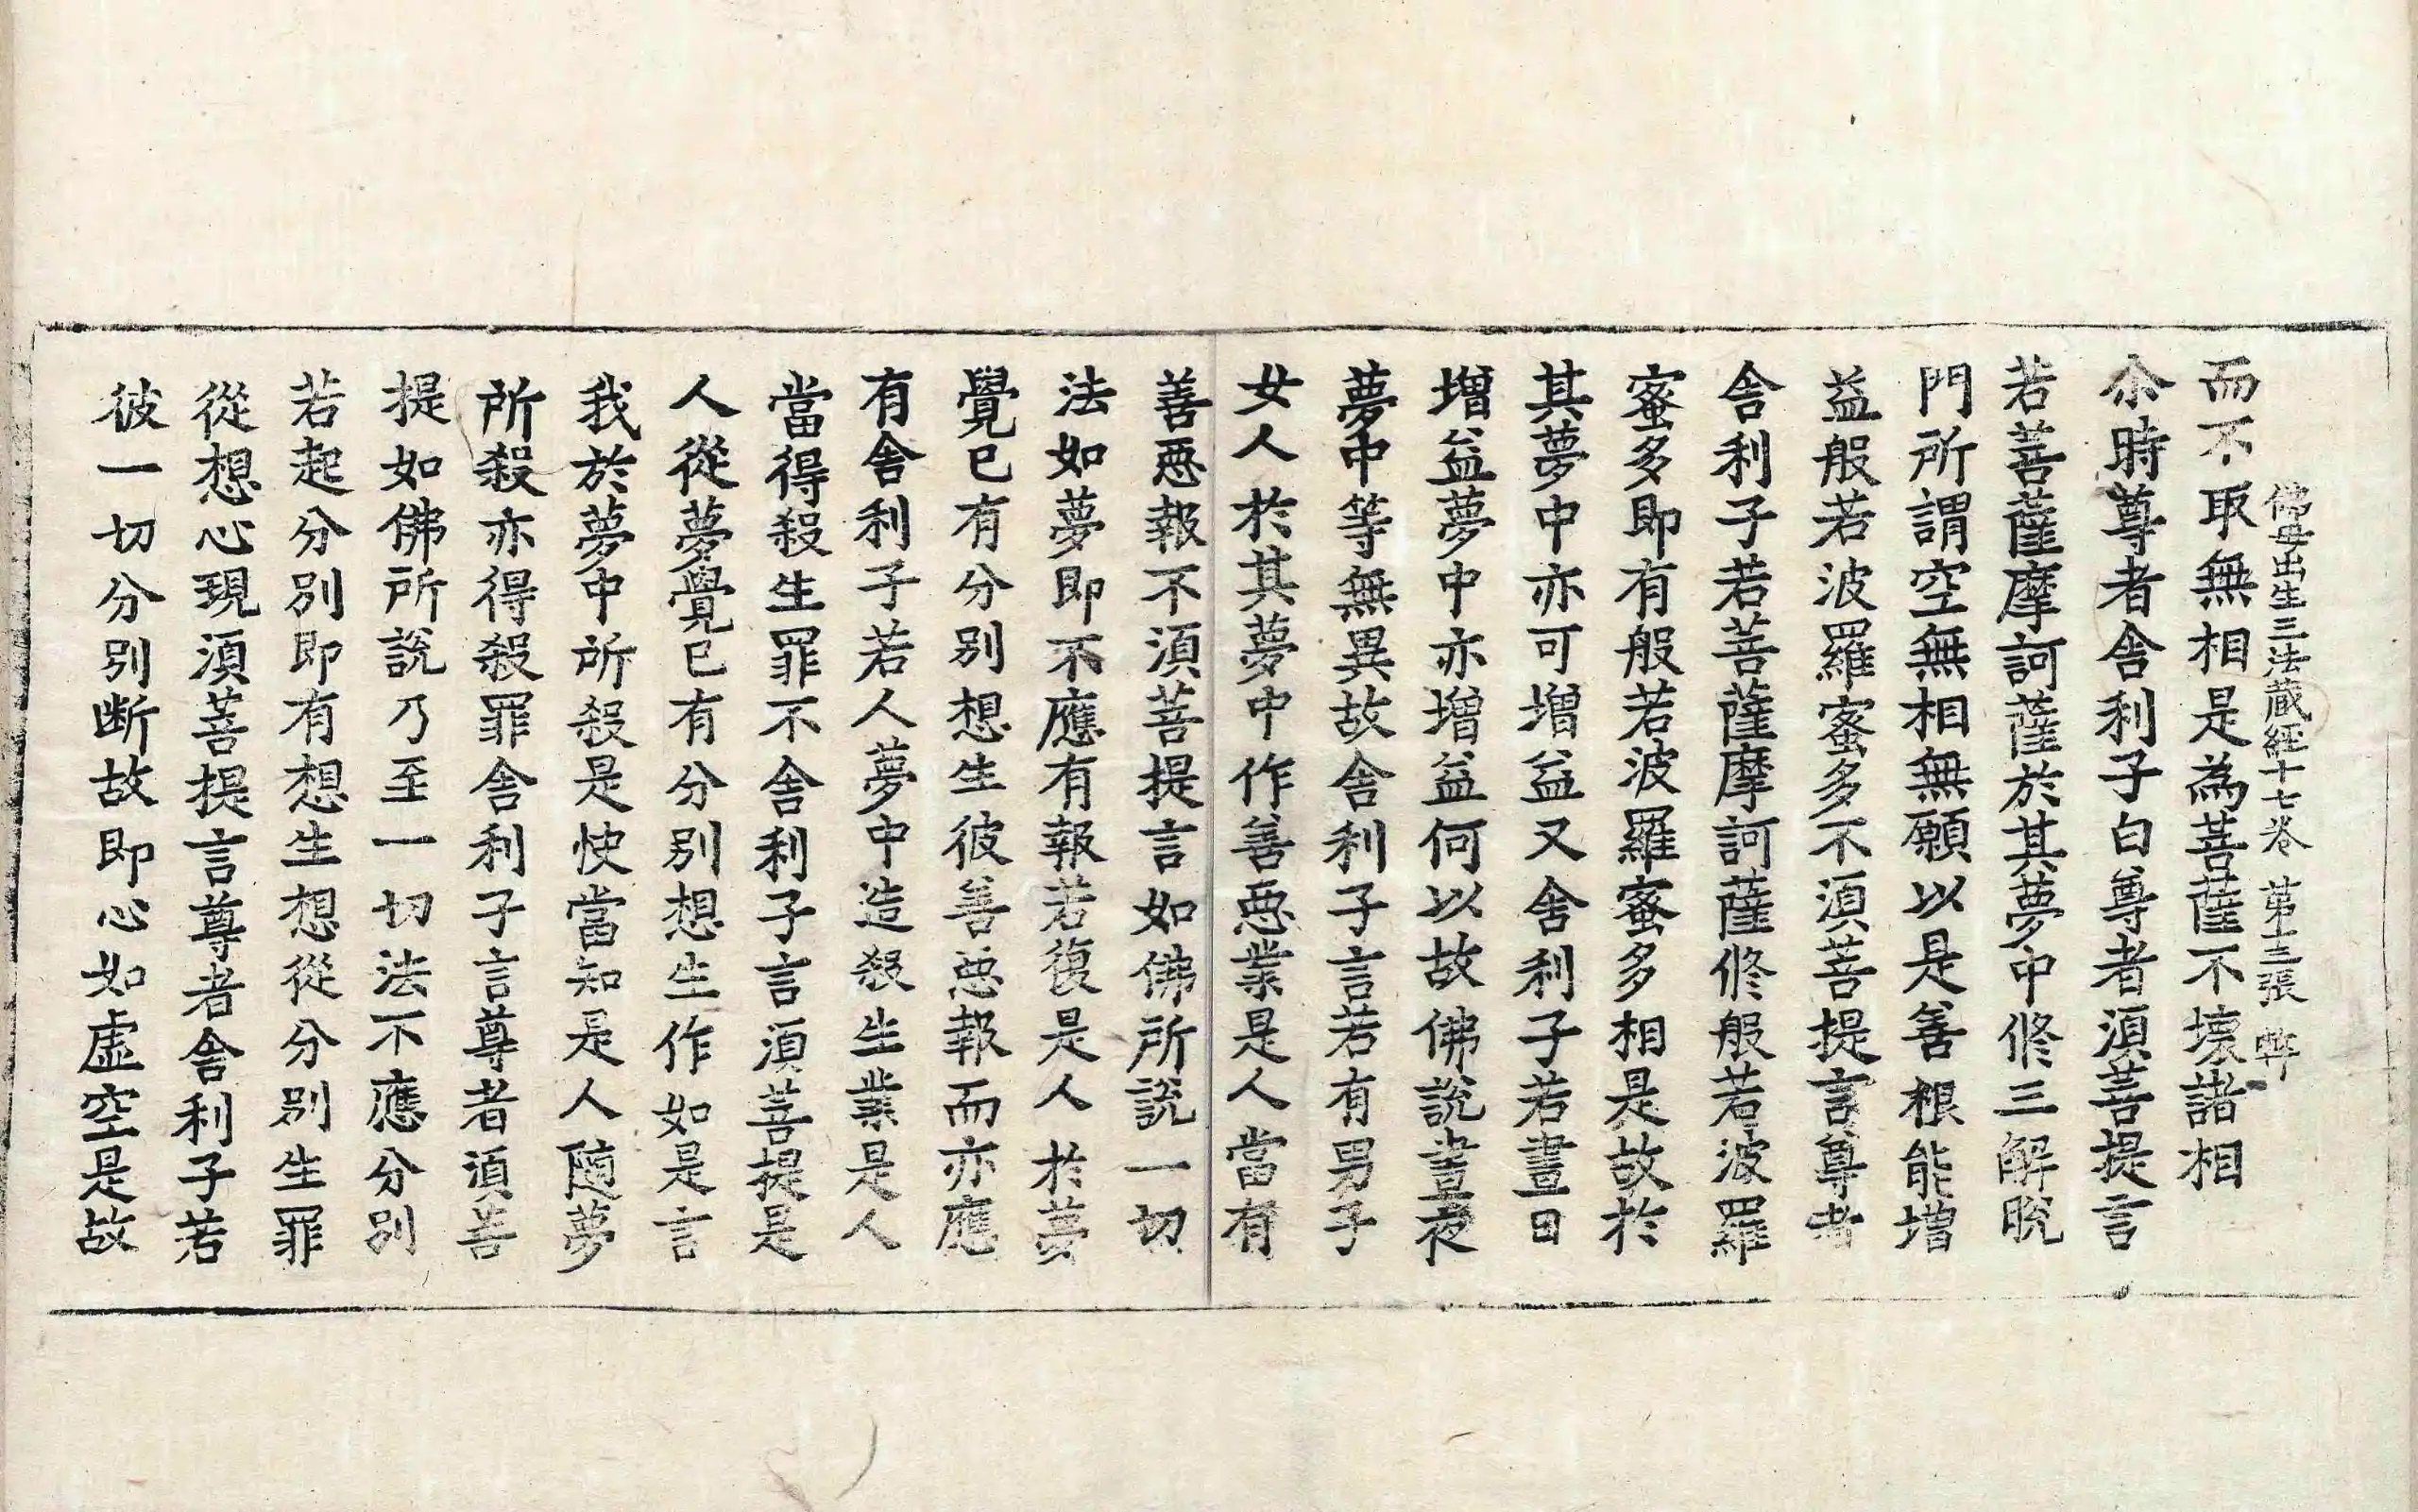 佛母出生三法蔵経十七巻 第十三張 弊
而不取無相是為菩薩不壞諸相
尒時尊者舎利子白尊者湏菩提言
若菩薩摩訶薩於其夢中修三解脫
門所謂空無相無願以是善根能增
益般若波羅蜜多不湏菩提言尊者
舎利子若菩薩摩訶薩修般若波羅
蜜多即有般若波羅蜜多相是故於
其夢中亦可增益又舎利子若晝日
增益夢中亦增益何以故佛說晝夜
夢中等無異故舎利子言若有男子
女人於其夢中作善惡業是人當有
善惡報不湏菩提言如佛所說一切
法如夢即不應有報若復是人於夢
覺已有分別想生彼善惡報而亦應
有舎利子若人夢中造殺生業是人
當得殺生罪不舎利子言湏菩提是
人從夢覺已有分別想生作如是言
我於夢中所殺是快當知是人隨夢
所殺亦得殺罪舎利子言尊者湏菩
提如佛所說乃至一切法不應分別
若起分別即有想生想從分別生罪
從想心現湏菩提言尊者舎利子若
彼一切分別断故即心如虛空是故